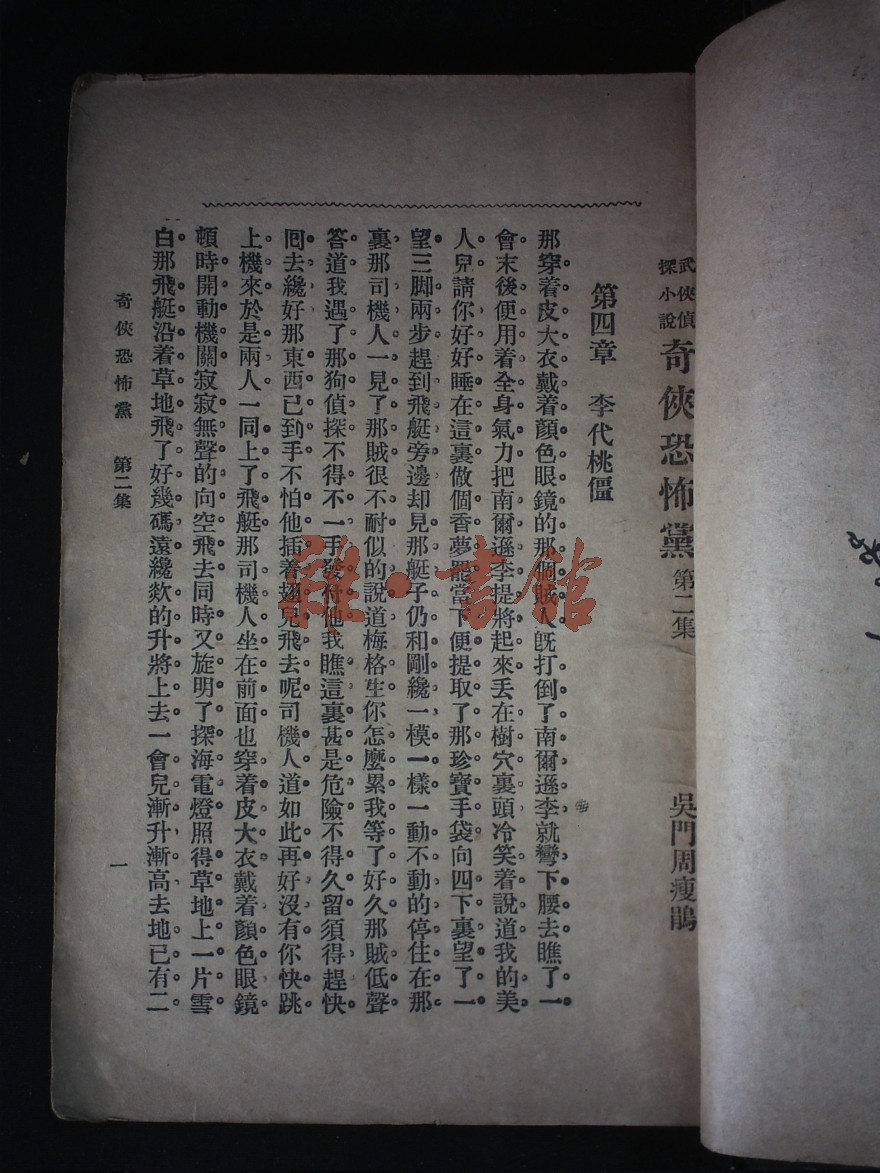 武俠偵探小說 奇俠恐怖黨 第二集 吳門周瘦鵑
第四章 李代桃僵
那穿着皮大衣戴着顏色眼鏡的那個賊人旣打倒了南爾遜李就彎下腰去瞧了一
會末後便用着全身氣力把南爾遜李提將起來丟在樹穴裏頭冷笑着說道我的美
人兒請你好好睡在這裏做個香夢罷當下便提取了那珍寶手袋向四下裏望了一
望三脚兩步趕到飛艇旁邊却見那艇子仍和剛纔一模一樣一動不動的停住在那
裏那司機人一見了那賊很不耐似的說道梅格生你怎麼累我等了好久那賊低聲
答道我遇了那狗偵探不得不一手發付他我瞧這裏甚是危險不得久留須得趕快
囘去纔好那東西已到手不怕他插着翅兒飛去呢司機人道如此再好沒有你快跳
上機來於是兩人一同上了飛艇那司機人坐在前面也穿着皮大衣戴着顏色眼鏡
頓時開動機關寂寂無聲的向空飛去同時又旋明了探海電燈照得草地上一片雪
白那飛艇沿着草地飛了好幾碼遠纔欻的升將上去一會兒漸升漸高去地已有二
奇俠恐怖黨 第二集
一
雜·書館